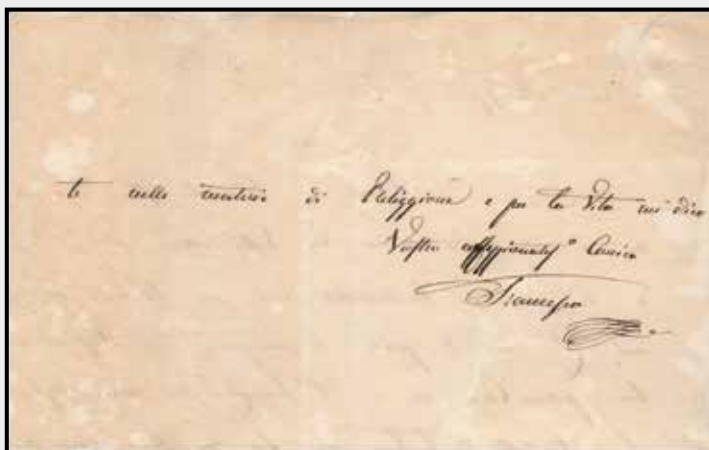 te nelle materie di Religgione e per la Vita mi dico
Vostro affezionatis° Amico
Francesco